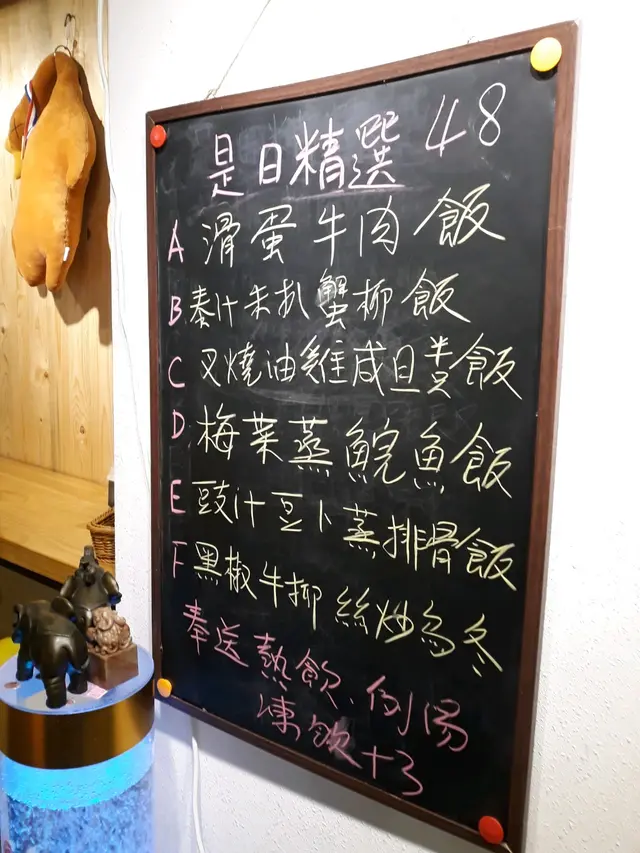 是日精選 48
A 滑蛋牛肉飯
B 泰汁朱扒蟹柳飯
C 叉燒油雞咸旦飯
D 梅菜蒸鯇魚飯
E 豉汁豆卜蒸排骨飯
F 黑椒牛柳絲炒烏冬
奉送熱飲、例湯
凍飲+3